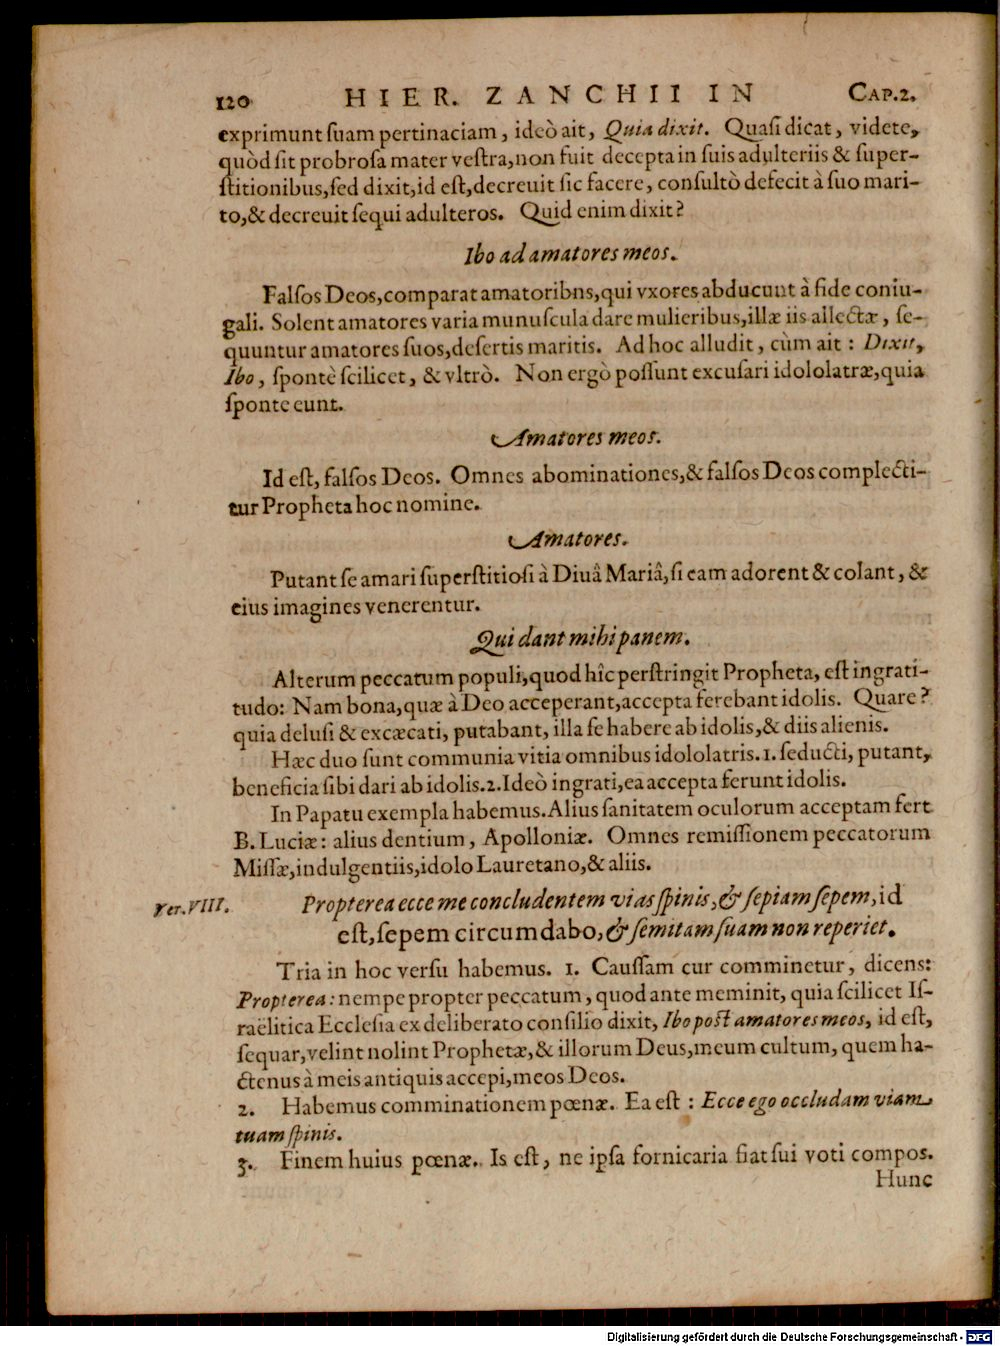 120 HIER. ZANCHII IN CAP.2.
exprimunt ſuam pertinaciam, ideò ait, Quia dixit. Quaſi dicat, videte,
quòd ſit probroſa mater veſtra,non fuit decepta in ſuis adulteriis & ſuper-
ſtitionibus,ſed dixit,id eſt,decreuit ſic facere, conſultò defecit à ſuo mari-
to,& decreuit ſequi adulteros. Quid enim dixit?
Ibo ad amatores meos.
Falſos Deos,comparat amatoribns,qui vxores abducunt à fide coniu-
gali. Solent amatores varia munuſcula dare mulieribus,illæ iis allectæ, ſe-
quuntur amatores ſuos,deſertis maritis. Ad hoc alludit, cùm ait: Dixit,
Ibo, ſpontè ſcilicet, & vltrò. Non ergò poſſunt excuſari idololatræ,quia
ſponte eunt.
Amatores meos.
Id eſt, falſos Deos. Omnes abominationes,& falſos Deos complecti-
tur Propheta hoc nomine.
Amatores.
Putant ſe amari ſuperſtitioſi à Diuâ Mariâ,ſi eam adorent & colant, &
eius imagines venerentur.
Qui dant mihi panem.
Alterum peccatum populi,quod hîc perſtringit Propheta, eſt ingrati-
tudo: Nam bona,quæ à Deo acceperant,accepta ferebant idolis. Quare?
quia deluſi & excæcati, putabant, illa ſe habere ab idolis,& diis alienis.
Hæc duo ſunt communia vitia omnibus idololatris. 1. ſeducti, putant,
beneficia ſibi dari ab idolis.2.Ideò ingrati,ea accepta ferunt idolis.
In Papatu exempla habemus.Alius ſanitatem oculorum acceptam fert
B. Luciæ: alius dentium, Apolloniæ. Omnes remiſſionem peccatorum
Miſſæ,indulgentiis,idolo Lauretano,& aliis.
Ver.VIII. Propterea ecce me concludentem vias ſpinis,& ſepiam ſepem,id
eſt,ſepem circumdabo,& ſemitam ſuam non reperiet.
Tria in hoc verſu habemus. 1. Cauſſam cur comminetur, dicens:
Propterea: nempe propter peccatum, quod ante meminit, quia ſcilicet Iſ-
raëlitica Eccleſia ex deliberato conſilio dixit, Ibo poſt amatores meos, id eſt,
ſequar,velint nolint Prophetæ,& illorum Deus,meum cultum, quem ha-
ctenus à meis antiquis accepi,meos Deos.
2. Habemus comminationem pœnæ. Ea eſt: Ecce ego occludam viam
tuam ſpinis.
3. Finem huius pœnæ. Is eſt, ne ipſa fornicaria fiat ſui voti compos.
Hunc
Digitalisierung gefördert durch die Deutsche Forschungsgemeinschaft - DFG